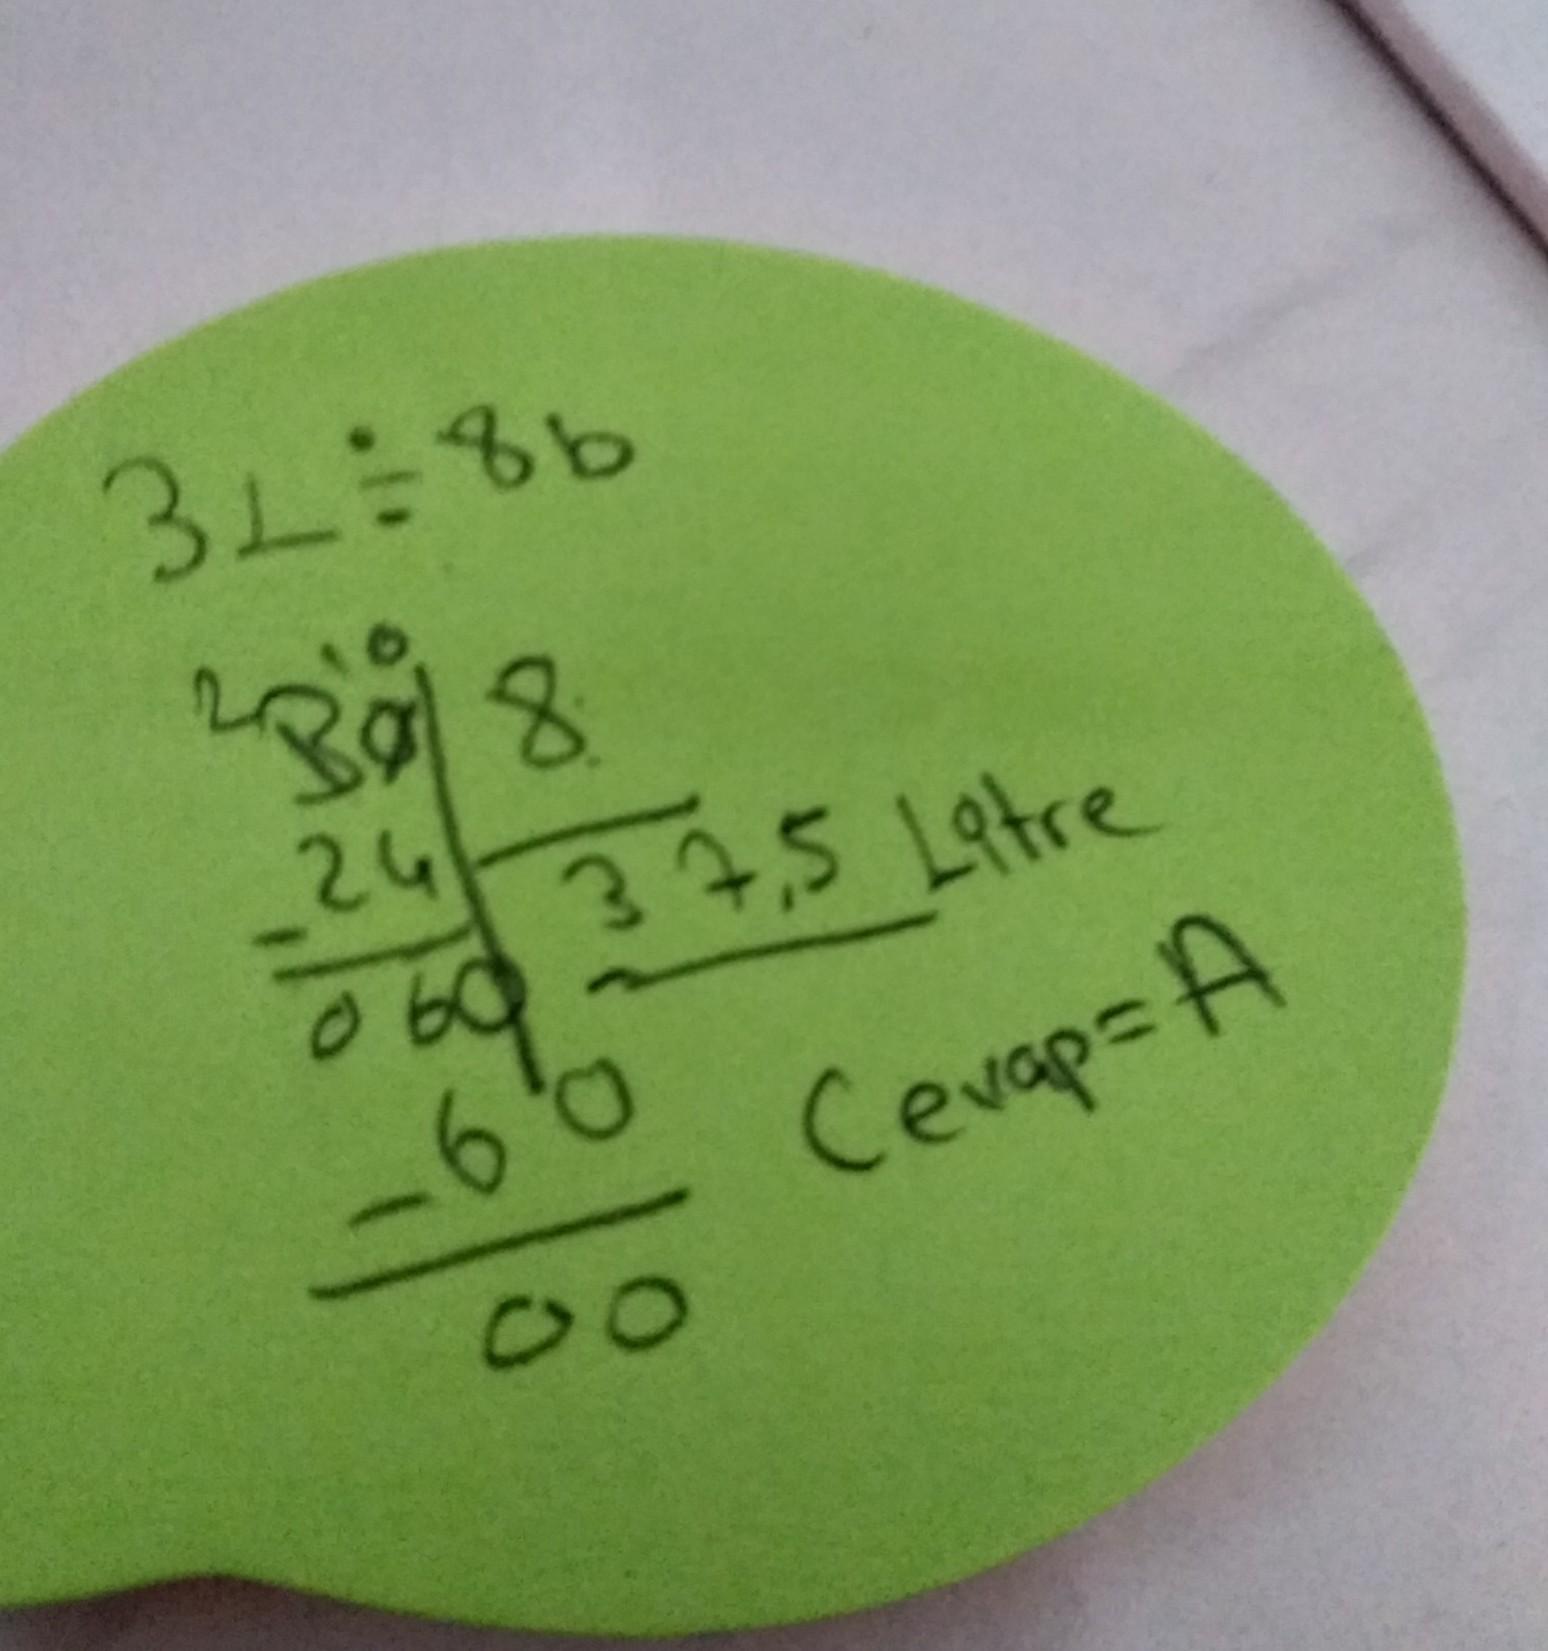 3L÷8b
2 10
30 8
-24 37,5 Litre
060
-60 Cevap=A
00